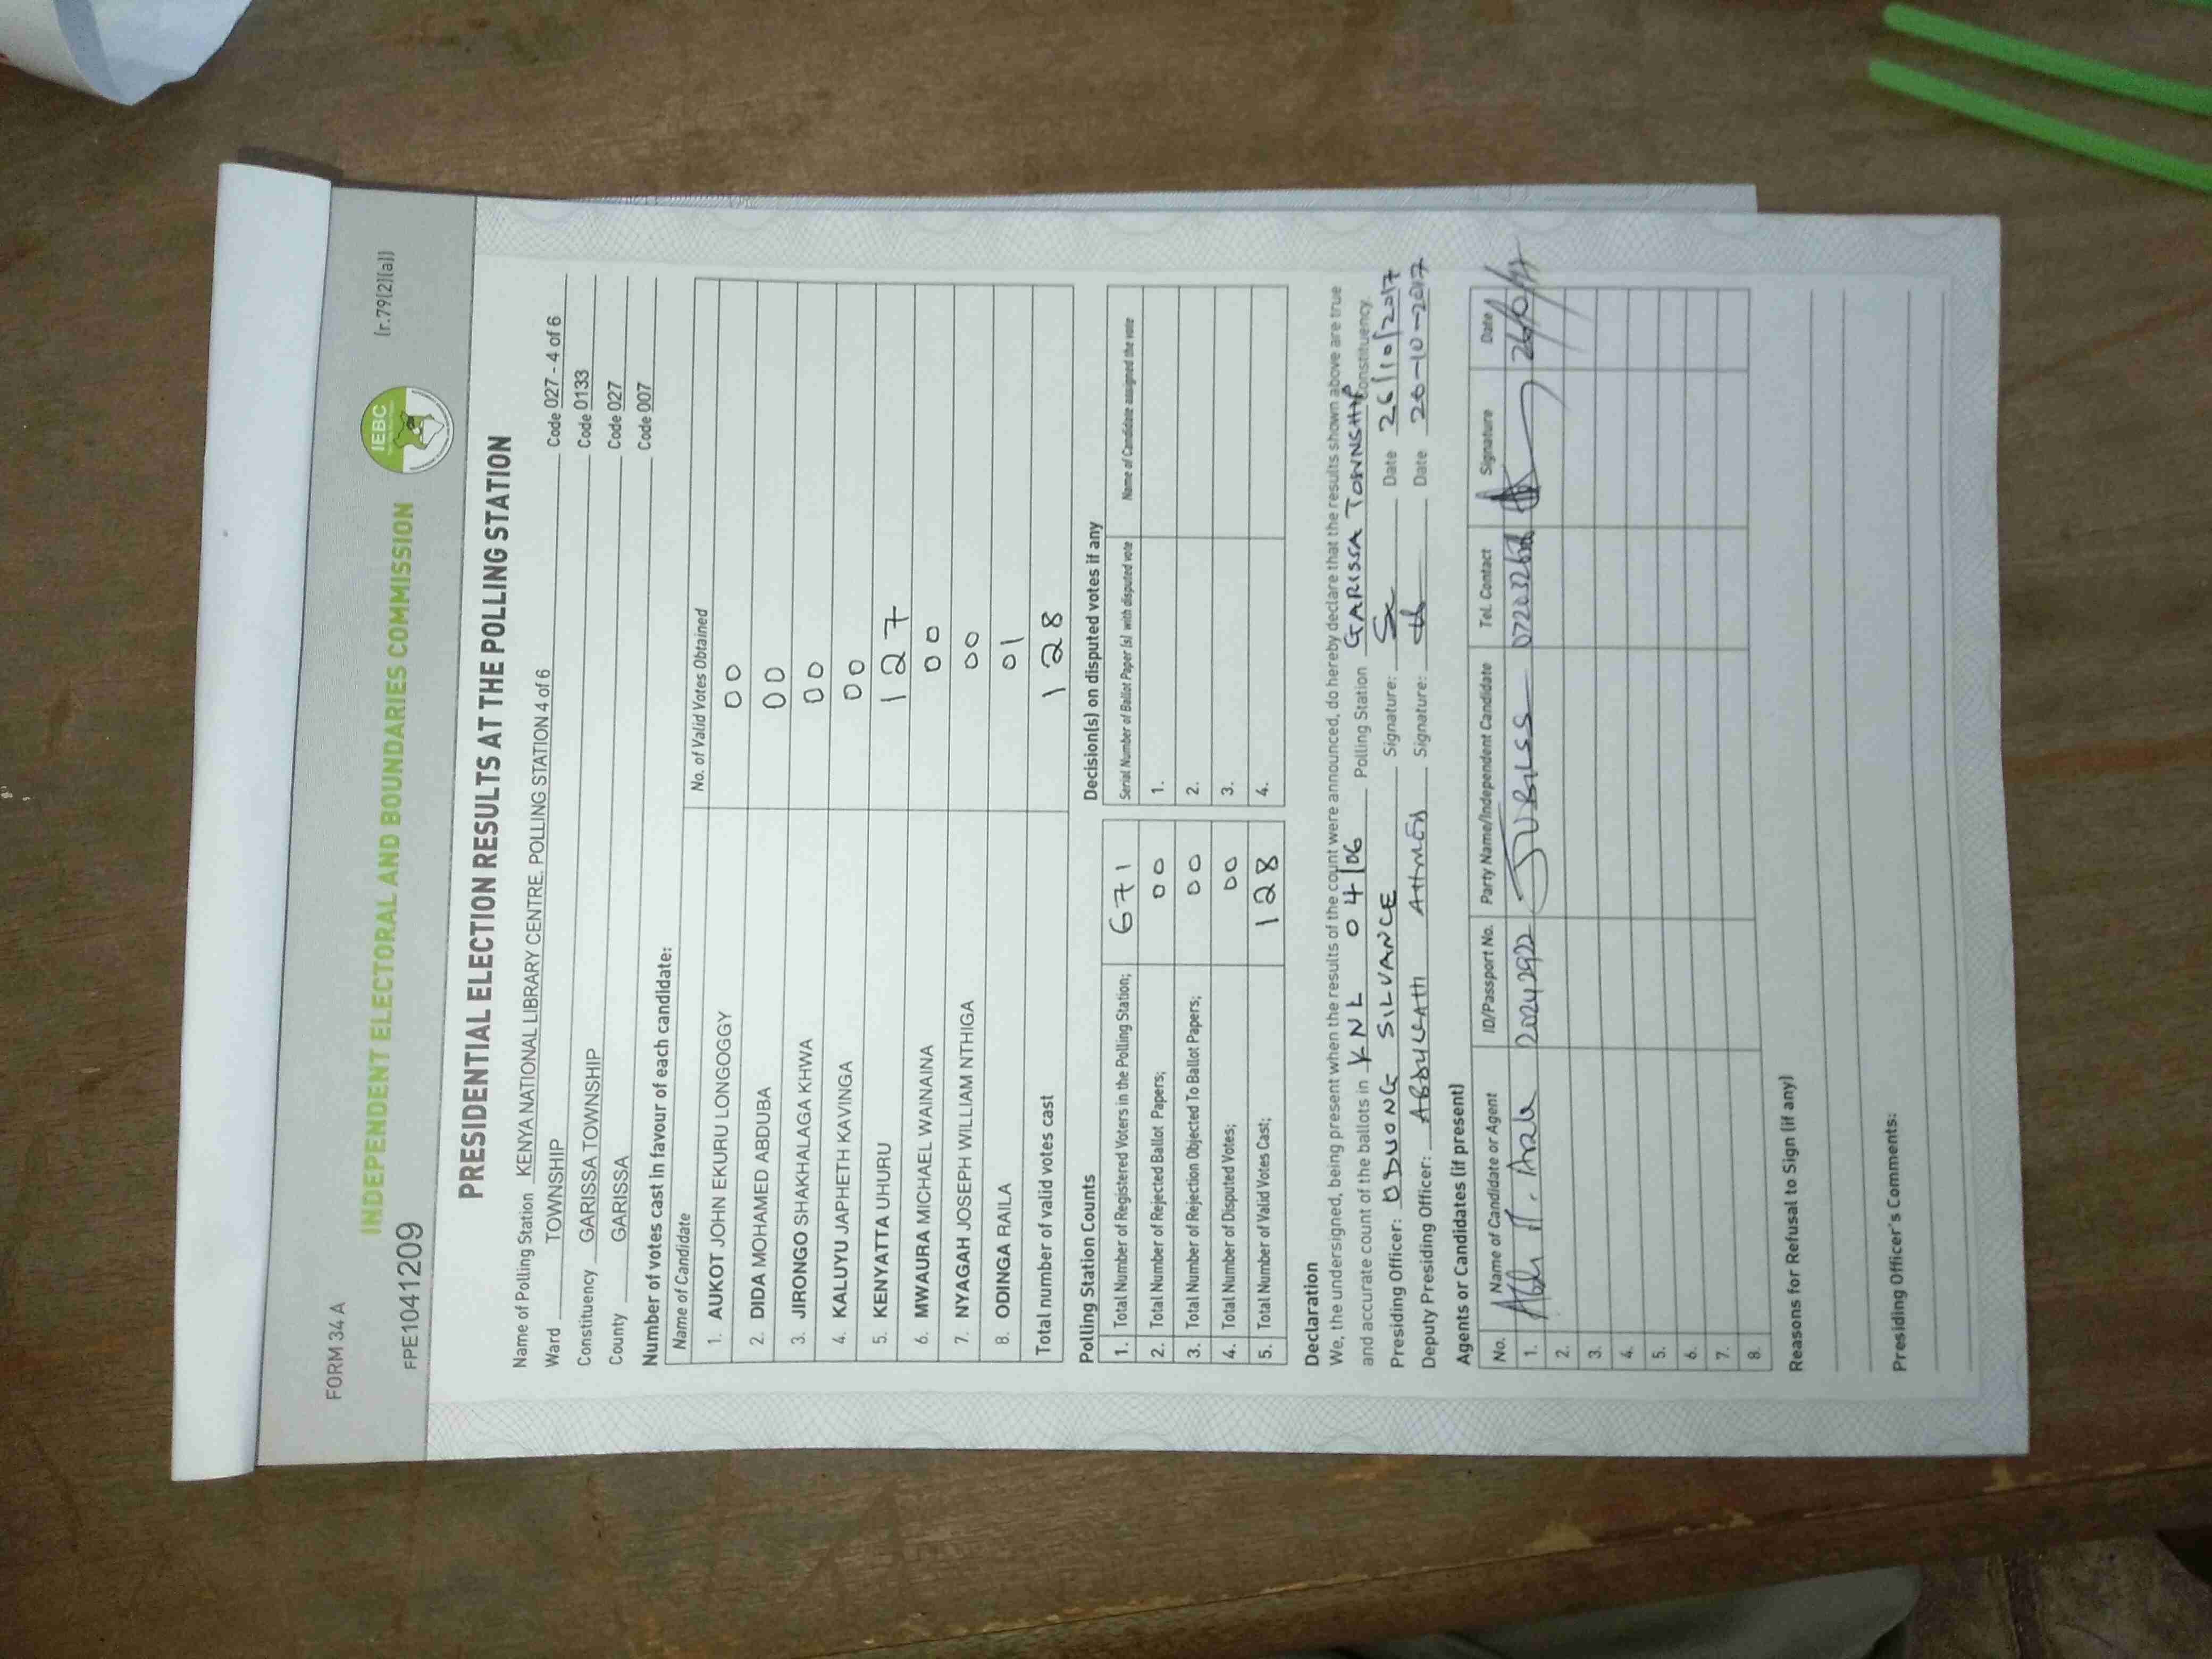 FORM 34 A
(r.79(2)(a))
INDEPENDENT ELECTORAL AND BOUNDARIES COMMISSION
IEBC
FPE1041209
PRESIDENTIAL ELECTION RESULTS AT THE POLLING STATION
Name of Polling Station KENYA NATIONAL LIBRARY CENTRE. POLLING STATION 4 of 6 Code 027 - 4 of 6
Ward TOWNSHIP Code 0133
Constituency GARISSA TOWNSHIP Code 027
County GARISSA Code 007
Number of votes cast in favour of each candidate:
Name of Candidate No. of Valid Votes Obtained
1. AUKOT JOHN EKURU LONGOGGY 00
2. DIDA MOHAMED ABDUBA 00
3. JIRONGO SHAKHALAGA KHWA 00
4. KALUYU JAPHETH KAVINGA 00
5. KENYATTA UHURU 127
6. MWAURA MICHAEL WAINAINA 00
7. NYAGAH JOSEPH WILLIAM NTHIGA 00
8. ODINGA RAILA 01
Total number of valid votes cast 128
Polling Station Counts
1. Total Number of Registered Voters in the Polling Station; 671
2. Total Number of Rejected Ballot Papers; 00
3. Total Number of Rejection Objected To Ballot Papers; 00
4. Total Number of Disputed Votes; 00
5. Total Number of Valid Votes Cast; 128
Decision(s) on disputed votes if any
Serial Number of Ballot Paper (s) with disputed vote Name of Candidate assigned the vote
1.
2.
3.
4.
Declaration
We, the undersigned, being present when the results of the count were announced, do hereby declare that the results shown above are true
and accurate count of the ballots in KNL 04/06 Polling Station GARISSA TOWNSHIP Constituency.
Presiding Officer: ODUONG SILVANCE Signature: Date 26/10/2017
Deputy Presiding Officer: Signature: Date 26-10-2017
Agents or Candidates (if present)
No. Name of Candidate or Agent ID/Passport No. Party Name/Independent Candidate Tel. Contact Signature Date
1. 20242922 26/10/17
2.
3.
4.
5.
6.
7.
8.
Reasons for Refusal to Sign (if any)
Presiding Officer's Comments: